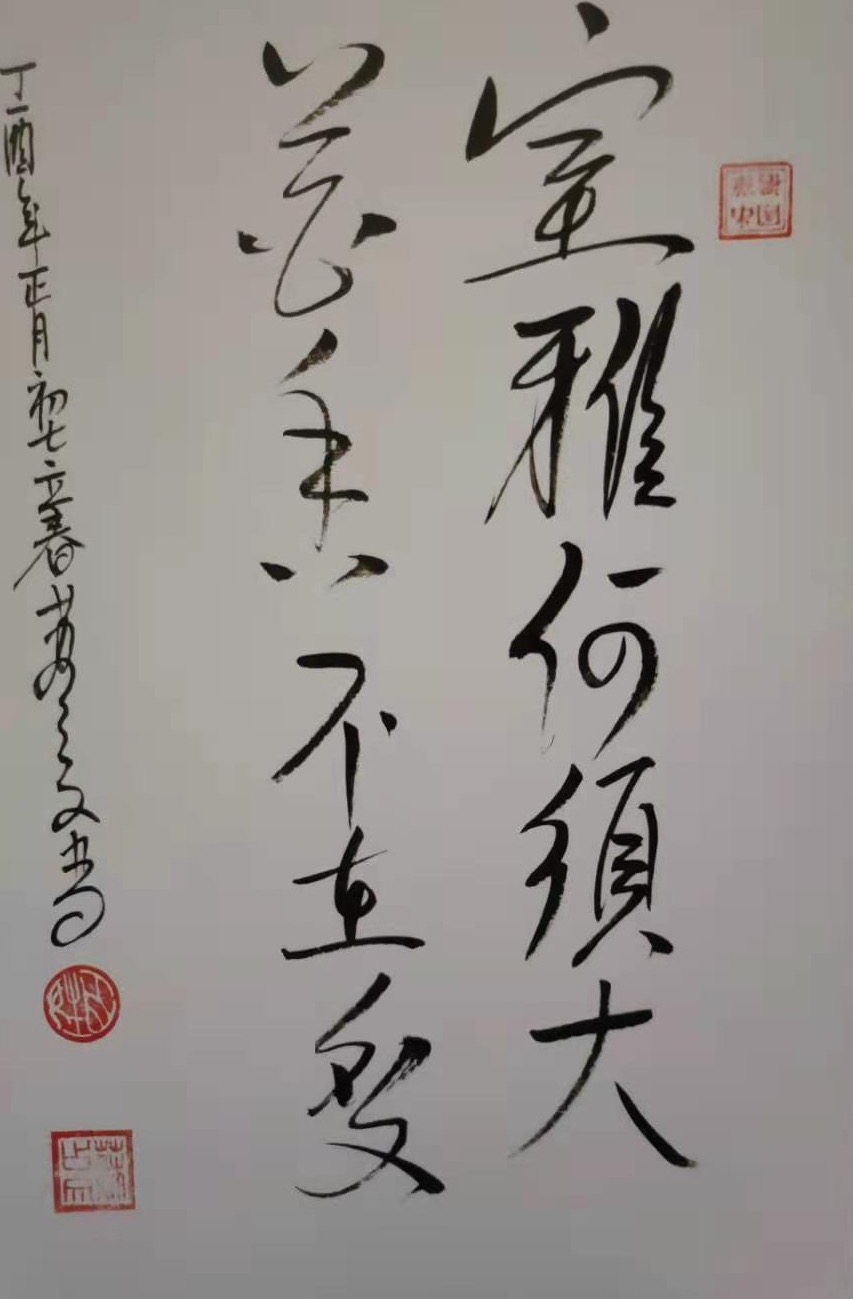 室雅何須大
花香不在多
丁酉年正月初七立春